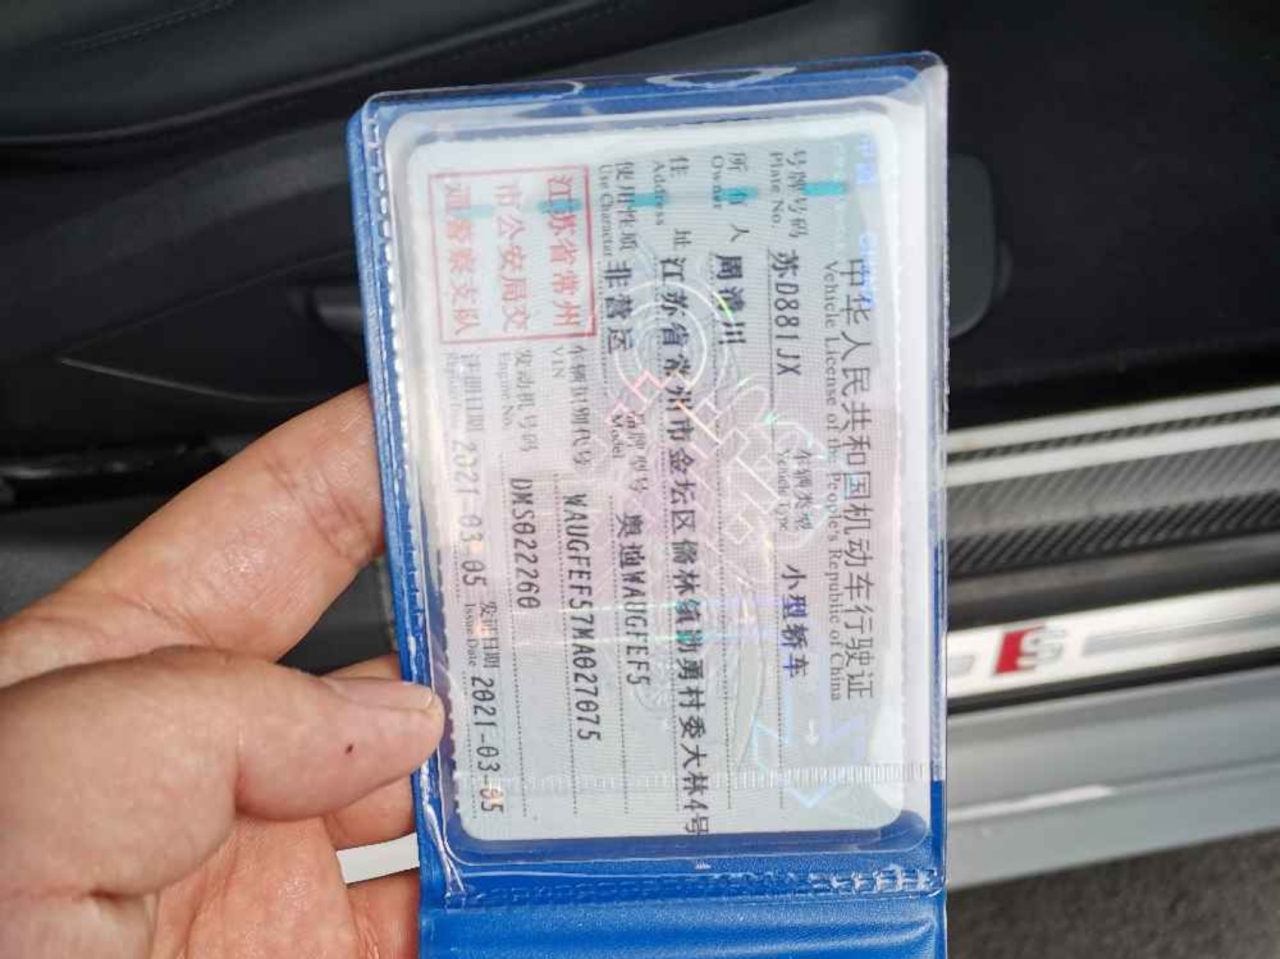 中华人民共和国机动车行驶证
Vehicle License of the People's Republic of China
号牌号码 苏D881JX 车辆类型 小型轿车
Plate No. Vehicle Type
所有人 周 川
Owner
住址 江苏省常州市金坛区儒林镇 勇村委大林4号
Address
使用性质 非营运 品牌型号 奥迪WAUGFEF5
Use Character Model
江苏省常州
市公安局交
通警察支队
车辆识别代号 WAUGFEF57MA027075
VIN
发动机号码 DMS022260
Engine No.
注册日期 2021-03-05 发证日期 2021-03-05
Issue Date
S